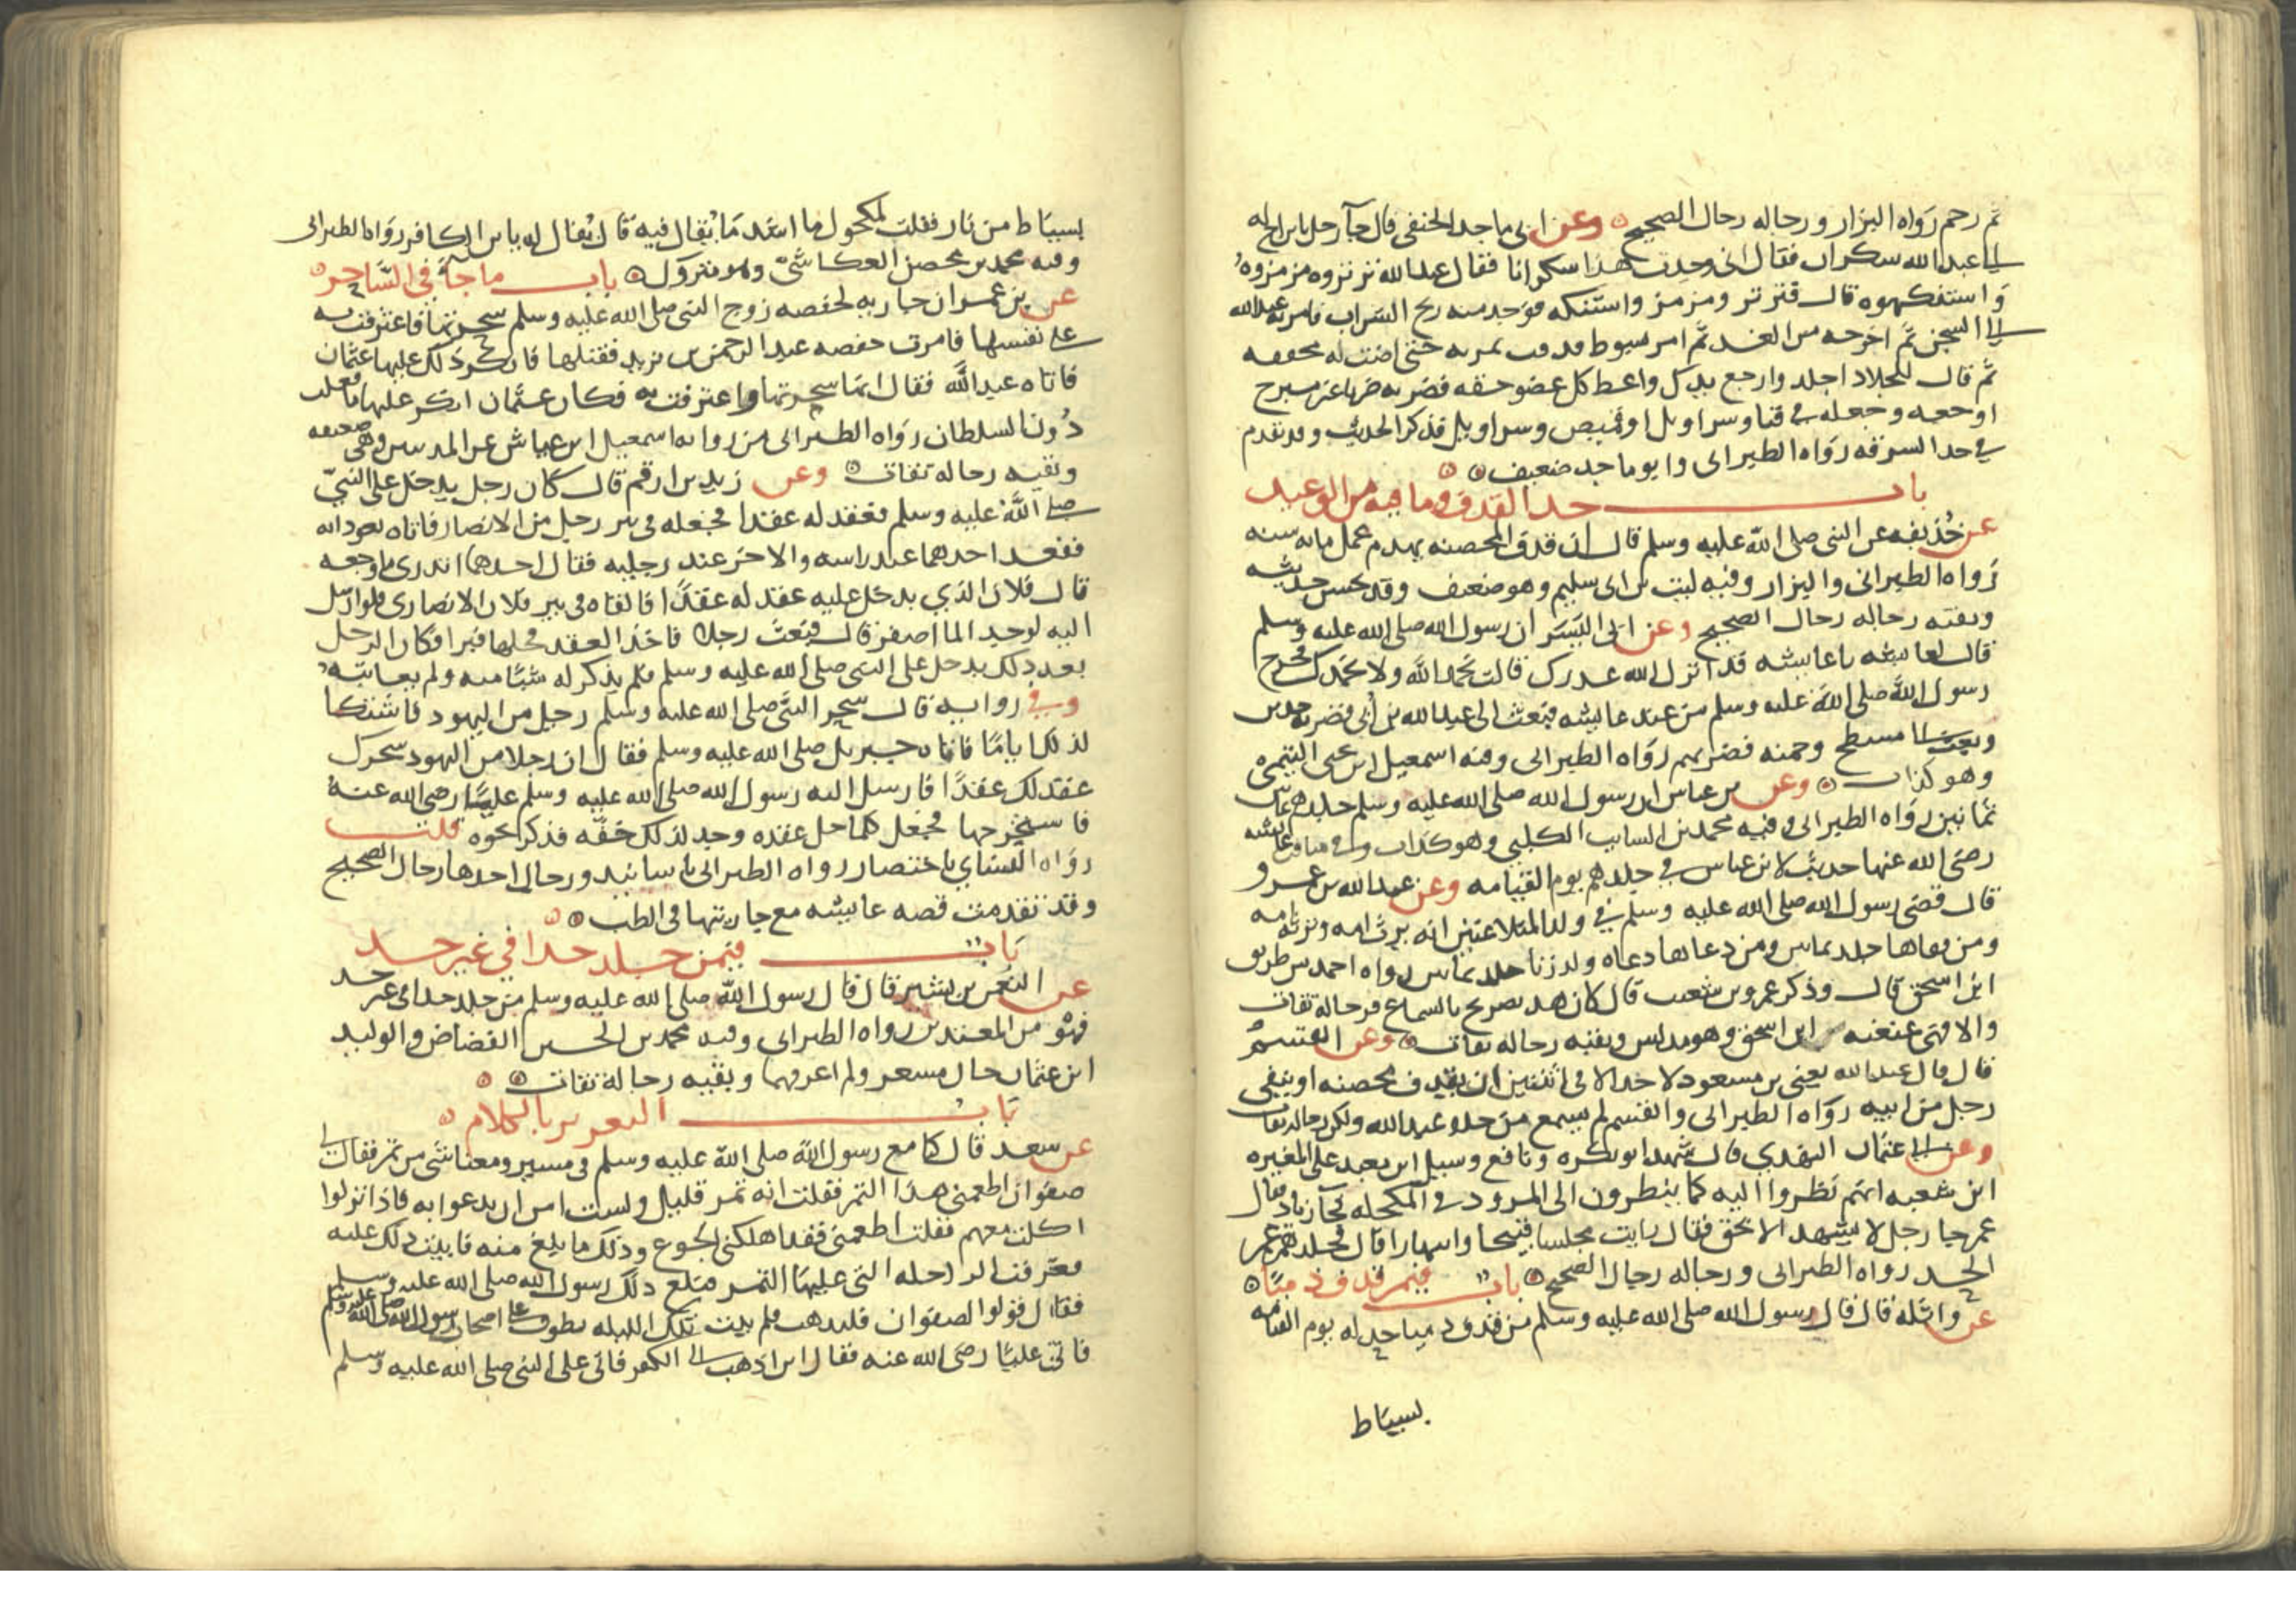 ثم رحم رواه البزار ورجاله رجال الصحيح وعن ابى ماجد الحنفى قال جآ رجل بابن اخ له
الى عبد الله سكران فقال انى وجدت هذا سكرانا فقال عبد الله ترتروه مزمزوه
واستنكهوه قال فترتر ومزمز واستنكه فوجد منه ريح الشراب فامر به عبد الله
الى السجن ثم اخرجه من الغد ثم امر بسوط فدقت ثمرته حتى اضت له مخففه
ثم قال للجلاد اجلد وارجع يدك واعط كل عضو حقه فضربه ضربا غير مبرح
اوجعه وجعله في قبا وسراويل او قميص وسراويل فذكر الحديث وقد تقدم
في حد السرقه رواه الطبرانى وابو ماجد ضعيف
باب حد القذف وما فيه من الوعيد
عن حذيفه عن النبى صلى الله عليه وسلم قال ان قذف المحصنه يهدم عمل مايه سنه
رواه الطبرانى والبزار وفيه ليث بن ابى سليم وهو ضعيف وقد يحسن حديثه
وبقيته رجاله رجال الصحيح وعن ابى اليسر ان رسول الله صلى الله عليه وسلم
قال لعايشه يا عايشه قد انزل الله عذرك قالت بحمد الله ولا بحمدك فخرج
رسول الله صلى الله عليه وسلم من عند عايشه فبعث الى عبد الله بن أبى فضربه حدين
وبعث الى مسطح وحمنه فضربهم رواه الطبرانى وفيه اسمعيل ابن يحيى التيمى
وهو كذاب وعن بن عباس ان رسول الله صلى الله عليه وسلم جلدهم ثمانين
ثمانين رواه الطبرانى وفيه محمد بن السايب الكلبى وهو كذاب وفي مناقب عايشه
رضى الله عنها حديث لابن عباس في جلدهم يوم القيامه وعن عبد الله بن عمرو
قال قضى رسول الله صلى الله عليه وسلم في ولد المتلاعنين انه يرث امه وترثه امه
ومن رماها جلد ثمانين ومن دعاها دعاه ولد زنا جلد ثمانين رواه احمد من طريق
ابن اسحق قال وذكر عمرو بن شعيب قال كان هذا تصريح بالسماع فرجاله ثقات
والا فهى عنعنه ابن اسحق وهو مدلس وبقيه رجاله ثقات وعن القسم
قال قال عبد الله يعنى بن مسعود لا حد الا فى اثنتين ان يقذف محصنه او ينفى
رجل من ابيه رواه الطبرانى والقسم لم يسمع من جده عبد الله ولكن رجاله ثقات
وعن ابى عثمان النهدي قال شهد ابو بكره ونافع وشبل ابن معبد على المغيره
ابن شعبه انهم نظروا اليه كما ينظرون الى المرود في المكحله فجآ زياد فقال
عمر جا رجل لا يشهد الا بحق فقال رايت مجلسا قبيحا وانبهارا قال فجلدهم عمر
الحد رواه الطبرانى ورجاله رجال الصحيح باب فيمن قذف ذميا
عن واثله قال قال رسول الله صلى الله عليه وسلم من قذف ذميا حد له يوم القيامه
بسياط
بسياط من نار فقلت لمكحول ما اشد ما يقال فيه قال يقال له يابن الكافر رواه الطبرانى
وفيه محمد بن محصن العكاشى وهو متروك باب ما جآ في الساحر
عن بن عمر ان جاريه لحفصه زوج النبى صلى الله عليه وسلم سحرتها فاعترفت به
على نفسها فامرت حفصه عبد الرحمن بن زيد فقتلها فانكر ذلك عليها عثمان
فاتاه عبد الله فقال انها سحرتها واعترفت به فكان عثمان انكر عليها ما فعلت
دون السلطان رواه الطبرانى من روايه اسمعيل ابن عياش عن المدنيين وهى ضعيفه
وبقيه رجاله ثقات وعن زيد بن ارقم قال كان رجل يدخل على النبى
صلى الله عليه وسلم فعقد له عقدا فجعله فى بير رجل من الانصار فاتاه ملكان يعودانه
فقعد احدهما عند راسه والاخر عند رجليه فقال احدهما اتدرى ما وجعه
قال فلان الذي يدخل عليه عقد له عقدا فالقاه فى بير فلان الانصارى فلو ارسل
اليه لوجد الما اصفر قال فبعث رجلا فاخذ العقد فحلها فبرا فكان الرجل
بعد ذلك يدخل على النبى صلى الله عليه وسلم فلم يذكر له شيًا منه ولم يعاتبه
وفي روايه قال سحر النبى صلى الله عليه وسلم رجل من اليهود فاشتكا
لذلك اياما فاتاه جبريل صلى الله عليه وسلم فقال ان رجلا من اليهود سحرك
عقد لك عقدًا فارسل اليه رسول الله صلى الله عليه وسلم عليًا رضى الله عنه
فاستخرجها فجعل كلما حل عقده وجد لذلك خفه فذكر نحوه قلت
رواه النساي باختصار رواه الطبرانى باسانيد ورجال احدها رجال الصحيح
وقد تقدمت قصه عايشه مع جاريتها فى الطب
باب فيمن جلد حدا في غير حد
عن النعمن بن بشير قال قال رسول الله صلى الله عليه وسلم من جلد حدا فى غير حد
فهو من المعتدين رواه الطبرانى وفيه محمد بن الحسين القضاض والوليد
ابن عثمان خال مسعر ولم اعرفهما وبقيه رجاله ثقات
باب التعزير بالكلام
عن سعد قال كنا مع رسول الله صلى الله عليه وسلم فى مسير ومعنا شى من تمر فقال لى
صفوان اطعمنى هذا التمر فقلت انه تمر قليل ولست امن ان يدعوا به فاذا نزلوا
اكلت معهم فقلت اطعمنى فقد اهلكنى الجوع وذلك ما بلغ منه فابيت ذلك عليه
فعرقت الراحله التى عليها التمر فبلغ ذلك رسول الله صلى الله عليه وسلم
فقال قولوا لصفوان فليذهب فلم يبت تلك الليله يطوف على اصحاب رسول الله صلى الله عليه وسلم
فاتى عليًا رضى الله عنه فقال اين اذهب الى الكفر فاتى على النبى صلى الله عليه وسلم